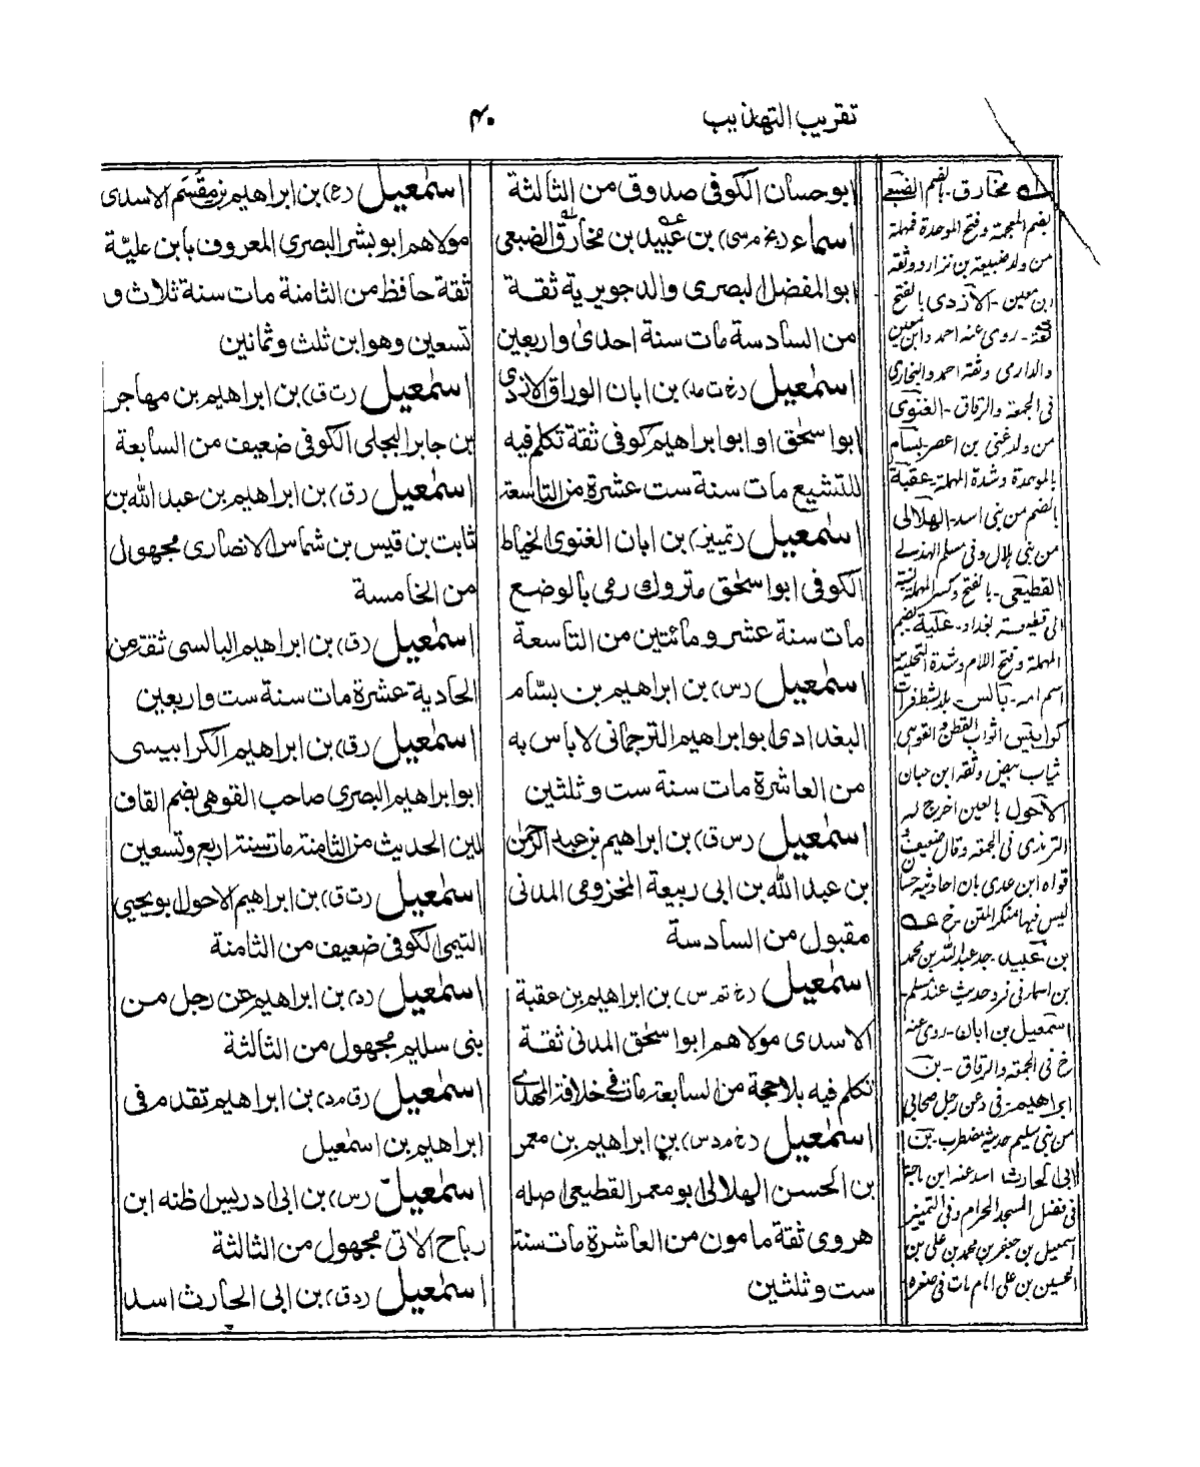 تقريب التهذيب
۴۰
ابو حسان الكوفى صدوق من الثالثة
اسماء (بخ م سى) بن عبيد بن مخارق الضبعى
ابو المفضل البصرى والد جويرية ثقة
من السادسة مات سنة احدى واربعين
اسمعيل (خ ت مد) بن ابان الوراق الازدى
ابو اسحق او ابو ابراهيم كوفى ثقة تكلم فيه
للتشيع مات سنة ست عشرة من التاسعة
اسمعيل (تمييز) بن ابان الغنوى الخياط
الكوفى ابو اسحق متروك رمى بالوضع
مات سنة عشر ومائتين من التاسعة
اسمعيل (س) بن ابراهيم بن بسام
البغدادى ابو ابراهيم الترجمانى لا باس به
من العاشرة مات سنة ست وثلثين
اسمعيل (س ق) بن ابراهيم بن عبد الرحمن
بن عبد الله بن ابى ربيعة المخزومى المدنى
مقبول من السادسة
اسمعيل (خ تم س) بن ابراهيم بن عقبة
الاسدى مولاهم ابو اسحق المدنى ثقة
تكلم فيه بلا حجة من السابعة مات فى خلافة المهدى
اسمعيل (خ م د س) بن ابراهيم بن معمر
بن الحسن الهلالى ابو معمر القطيعى اصله
هروى ثقة مامون من العاشرة مات سنة
ست وثلثين
اسمعيل (ع) بن ابراهيم بن مقسم الاسدى
مولاهم ابو بشر البصرى المعروف بابن علية
ثقة حافظ من الثامنة مات سنة ثلاث و
تسعين وهو ابن ثلث وثمانين
اسمعيل (ت ق) بن ابراهيم بن مهاجر
بن جابر البجلى الكوفى ضعيف من السابعة
اسمعيل (ق) بن ابراهيم بن عبد الله بن
ثابت بن قيس بن شماس الانصارى مجهول
من الخامسة
اسمعيل (ق) بن ابراهيم البالسى ثقة من
الحادية عشرة مات سنة ست واربعين
اسمعيل (ق) بن ابراهيم الكرابيسى
ابو ابراهيم البصرى صاحب القوهى بضم القاف
لين الحديث من الثامنة مات سنة اربع وتسعين
اسمعيل (ت ق) بن ابراهيم الاحول ابو يحيى
التيمى الكوفى ضعيف من الثامنة
اسمعيل (د) بن ابراهيم عن رجل من
بنى سليم مجهول من الثالثة
اسمعيل (ق مد) بن ابراهيم تقدم فى
ابراهيم بن اسمعيل
اسمعيل (س) بن ابى ادريس اظنه ابن
رباح الاتى مجهول من الثالثة
اسمعيل (د ق) بن ابى الحارث اسد
له مخارق - بالضم الضبعى
بضم المعجمة وفتح الموحدة فمهلة
من ولد ضبيعة بن نزار ووثقه
ابن معين - الازدى بالفتح
ثقة - روى عنه احمد وابن معين
والدارى وثقه احمد والبخارى
فى الجمعة والرقاق - الغنوى
من ولد غنى بن اعصر - بسام
بالموحدة وشدة المهملة - عقبة
بالضم من بنى اسد - الهلالى
من بنى هلال وفى مسلم الهذلى
القطيعى - بالفتح وكسر المهملة نسبة
الى قطيعة بغداد - علية بضم
المهملة وفتح اللام وشدة التحتية
اسم امه - بالس بلد بشط فرات
كرابيس اثواب القطن القوهى
ثياب بيض وثقه ابن حبان
الاحول بالعين اخرج له
الترمذى فى الجمعة وقال ضعيف و
قواه ابن عدى بان احاديثه حسا
ليس فيها منكر المتن - خ عه
بن عبيد - جد عبد الله بن محمد
بن اسماء فى فرد حديث عند مسلم -
اسمعيل بن ابان - روى عنه
خ فى الجمعة والرقاق - بن
ابراهيم - فى د عن رجل صحابى
من بنى سليم حديثه مضطرب - بن
ابى الحارث اسد عنه ابن ماجة
فى فضل المسجد الحرام وفى التمييز
اسمعيل بن جعفر بن محمد بن على بن
الحسين بن على امام مات فى صغره